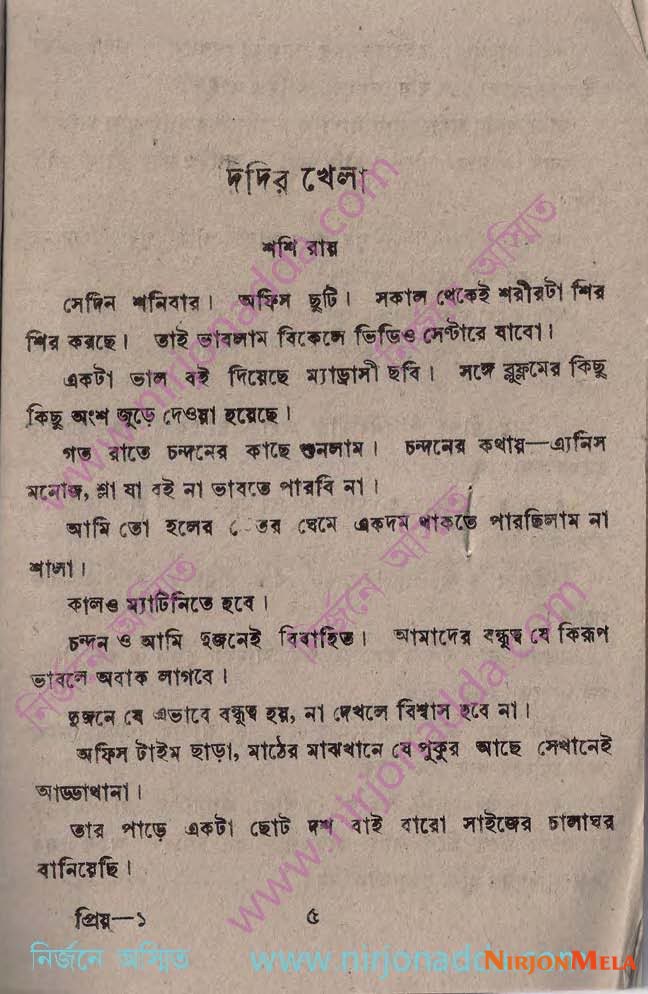 দিদির খেলা
শশি রায়
সেদিন শনিবার। অফিস ছুটি। সকাল থেকেই শরীরটা শির
শির করছে। তাই ভাবলাম বিকেলে ভিডিও সেন্টারে যাবো।
একটা ভাল বই দিয়েছে ম্যাড্রাসী ছবি। সঙ্গে ব্লুফ্লমের কিছু
কিছু অংশ জুড়ে দেওয়া হয়েছে।
গত রাতে চন্দনের কাছে শুনলাম। চন্দনের কথায়—এ্যানিস
মনোজ, শ্লা যা বই না ভাবতে পারবি না।
আমি তো হলের ঘেমে একদম থাকতে পারছিলাম না
শালা।
কালও ম্যাটিনিতে হবে।
চন্দন ও আমি দুজনেই বিবাহিত। আমাদের বন্ধুত্ব যে কিরূপ
ভাবলে অবাক লাগবে।
দুজনে যে এভাবে বন্ধুত্ব হয়, না দেখলে বিশ্বাস হবে না।
অফিস টাইম ছাড়া, মাঠের মাঝখানে যে পুকুর আছে সেখানেই
আড্ডাখানা।
তার পাড়ে একটা ছোট দশ বাই বারো সাইজের চালাঘর
বানিয়েছি।
প্রিয়—১
৫
নির্জনে অস্মিত www.nirjonadda.com
NIRJONMELA
www.nirjonadda.com
নির্জনে অস্মিত
নির্জনে অস্মিত
নির্জনে অস্মিত
www.nirjonadda.com